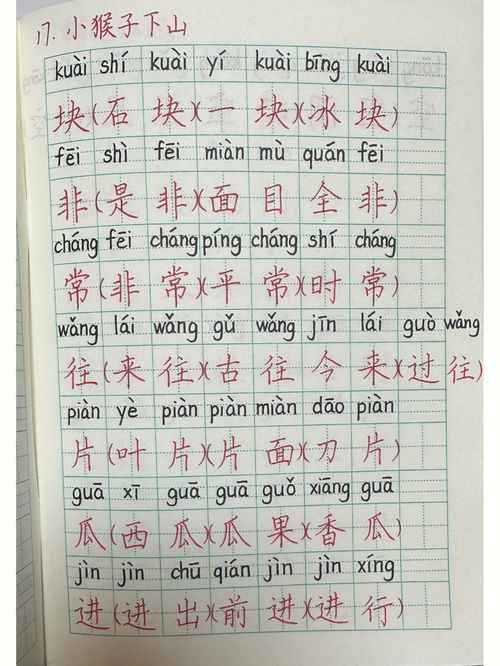 17. 小猴子下山
kuài shí kuài yí kuài bīng kuài
块(石块)(一块)(冰块)
fēi shì fēi miàn mù quán fēi
非(是非)(面目全非)
cháng fēi cháng píng cháng shí cháng
常(非常)(平常)(时常)
wǎng lái wǎng gǔ wǎng jīn lái guò wǎng
往(来往)(古往今来)(过往)
piàn yè piàn piàn miàn dāo piàn
片(叶片)(片面)(刀片)
guā xī guā guā guǒ xiāng guā
瓜(西瓜)(瓜果)(香瓜)
jìn jìn chū qián jìn jìn xíng
进(进出)(前进)(进行)